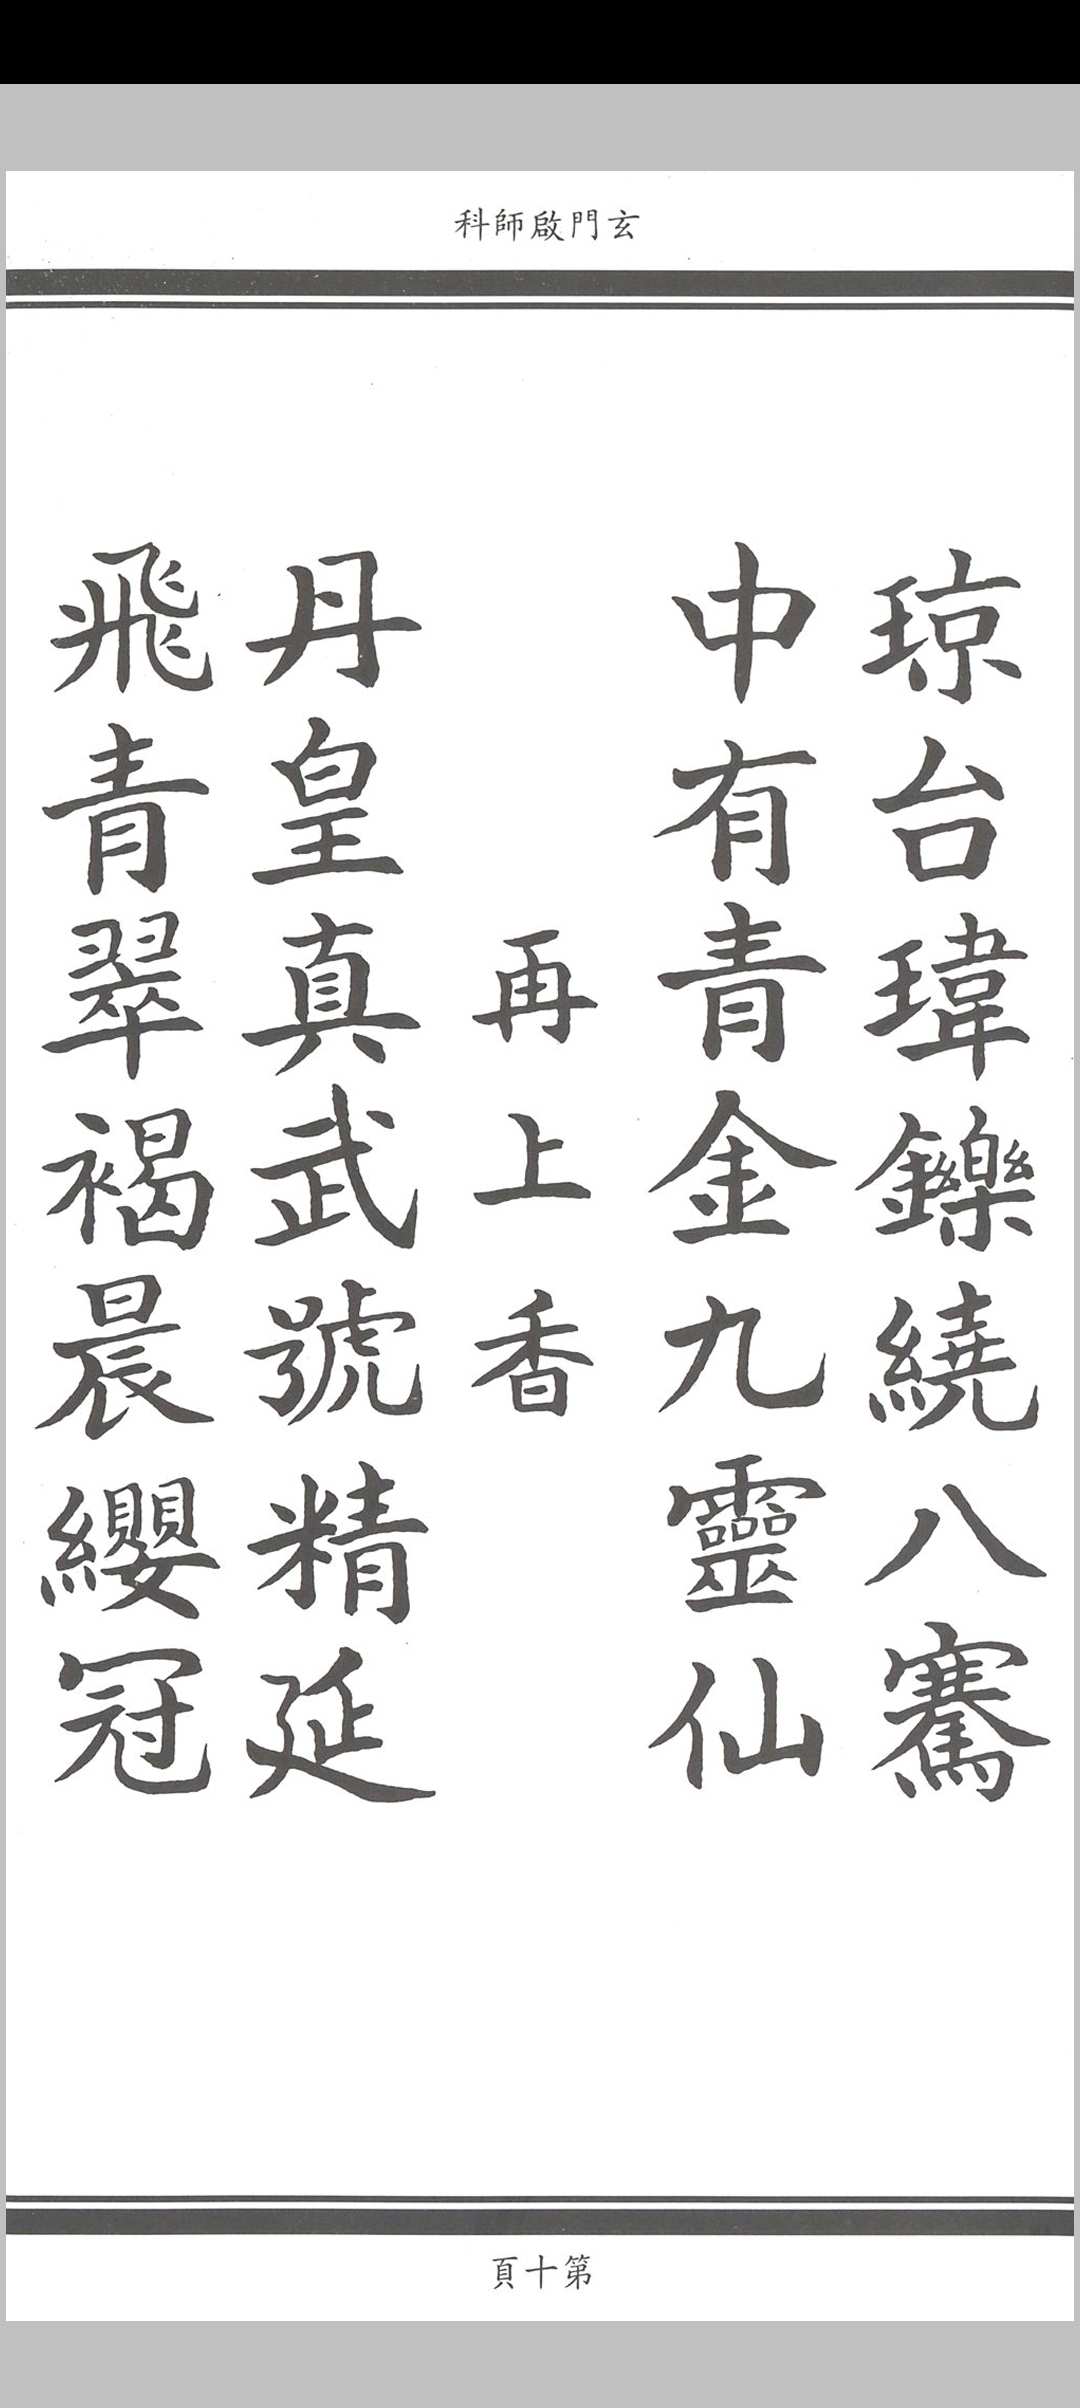 玄門啟師科
琼台瑋鑠繞八騫
中有青金九靈仙
再上香
丹皇真武號精延
飛青翠褐晨纓冠
第十頁